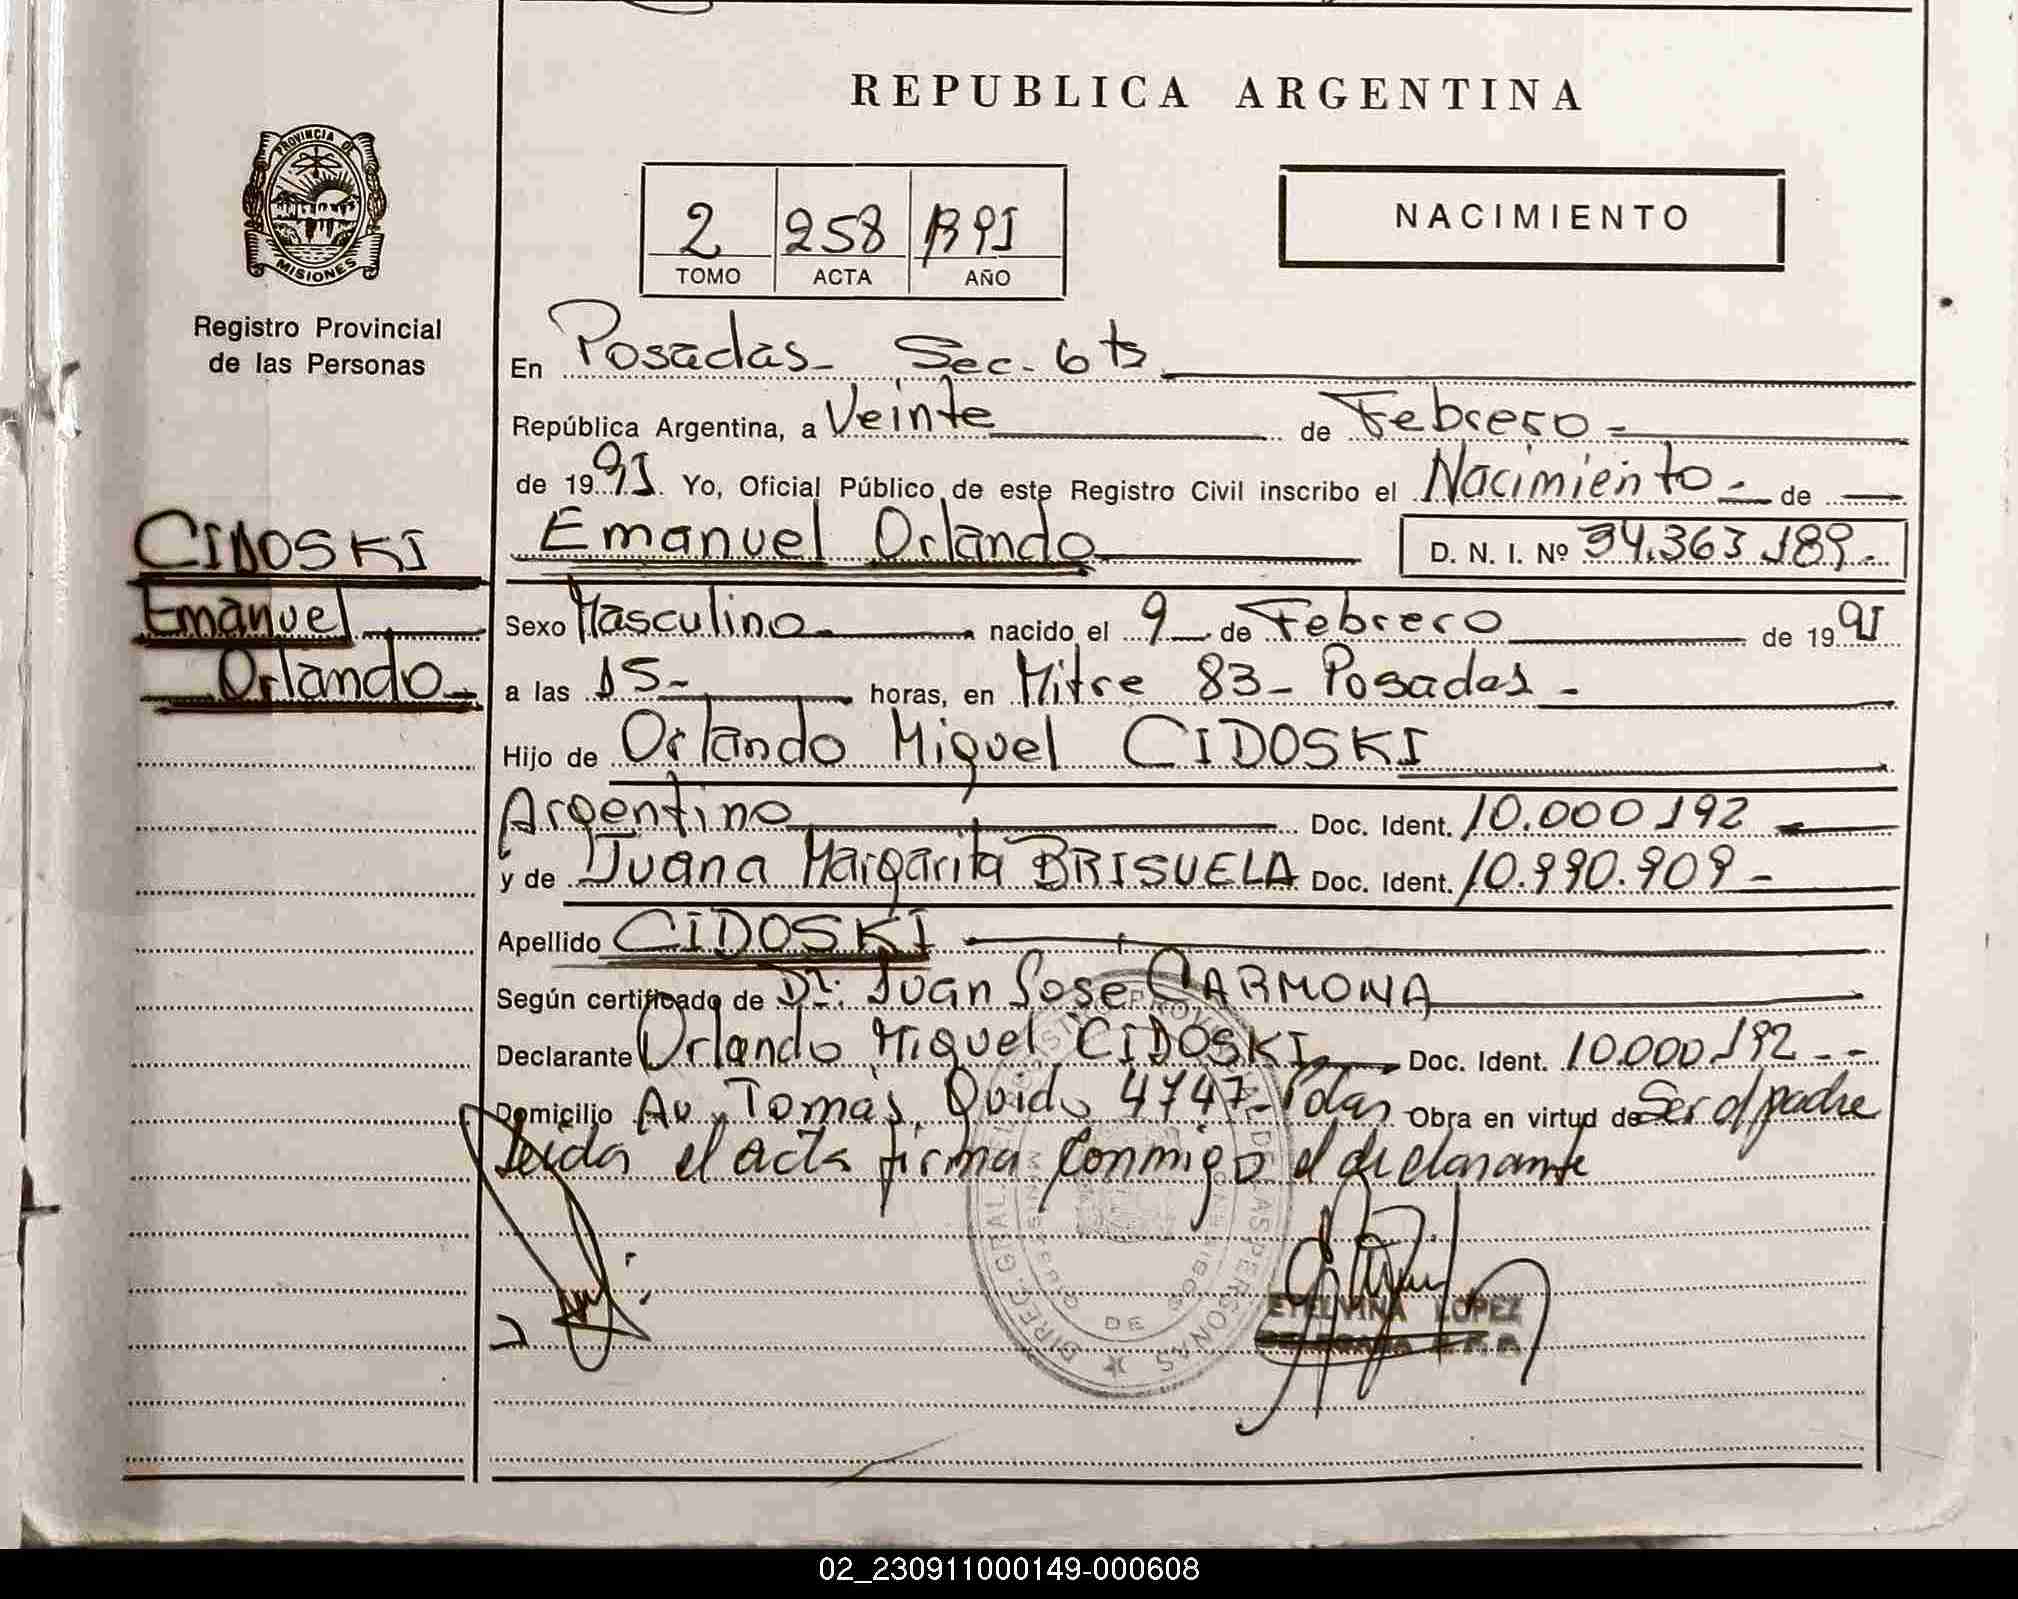 REPUBLICA ARGENTINA
PROVINCIA DE
MISIONES
Registro Provincial
de las Personas
2 258 1991
TOMO ACTA AÑO
NACIMIENTO
En Posadas - Sec. 6ta
República Argentina, a Veinte de Febrero -
de 1991. Yo, Oficial Público de este Registro Civil inscribo el Nacimiento - de
CIDOSKI
Emanuel
Orlando -
Emanuel Orlando
D. N. I. Nº 34.363.189 -
Sexo Masculino - nacido el 9 de Febrero de 1991
a las 15 - horas, en Mitre 83 - Posadas -
Hijo de Orlando Miguel CIDOSKI
Argentino Doc. Ident. 10.000.192
y de Juana Margarita BRISUELA Doc. Ident. 10.990.909 -
Apellido CIDOSKI
Según certificado de Dr. Juan Jose CARMONA
Declarante Orlando Miguel CIDOSKI Doc. Ident. 10.000.192 - -
Domicilio Av. Tomás Guido 4747 - Pdas Obra en virtud de Ser el padre
Leida el acta firma conmigo el declarante
ETELVINA LOPEZ
02_230911000149-000608